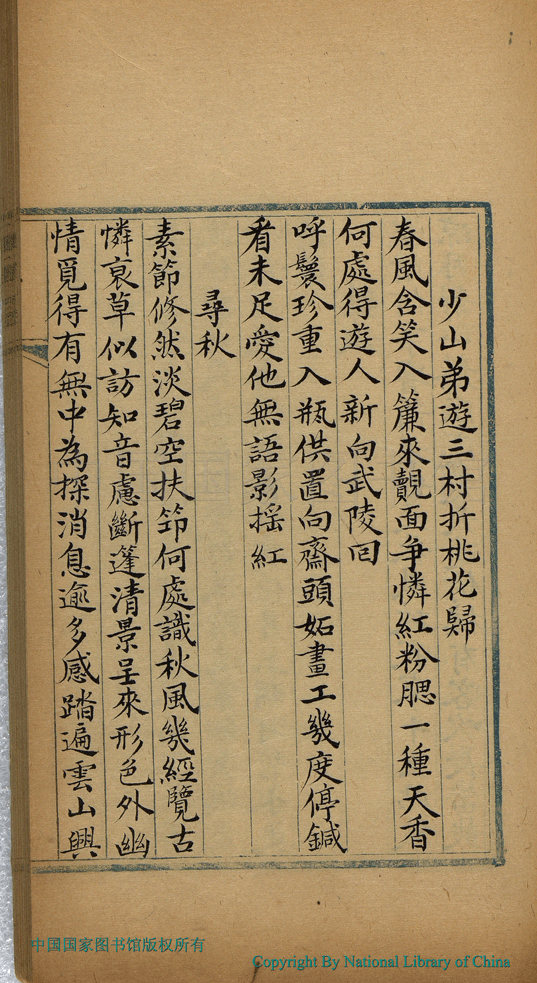 少山弟遊三村折桃花歸
春風含笑入簾來覿面爭憐紅粉腮一種天香
何處得遊人新向武陵回
呼鬟珍重入瓶供置向齋頭妬畫工幾度停鍼
看未足愛他無語影摇紅
尋秋
素節修然淡碧空扶笻何處識秋風幾經覽古
憐衰草似訪知音慮斷蓬清景呈來形色外幽
情覓得有無中為探消息逾多感踏遍雲山興
中国国家图书馆版权所有
Copyright By National Library of China